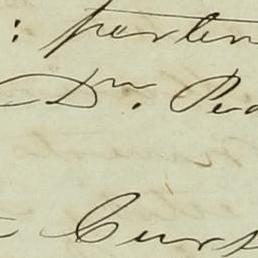 : perten
Dn. Ped
Curs